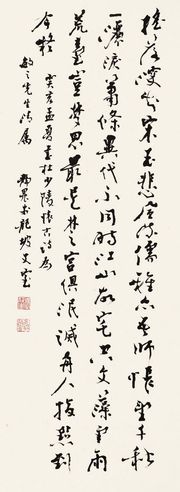 搖落深知宋玉悲風流儒雅亦吾師悵望千秋
一灑淚蕭條異代不同時江山故宅空文藻雲雨
荒臺豈夢思最是楚宮俱泯滅舟人指點到
今疑 癸亥孟夏書杜少陵懷古詩為
敏之先生清屬 靜農於龍坡丈室